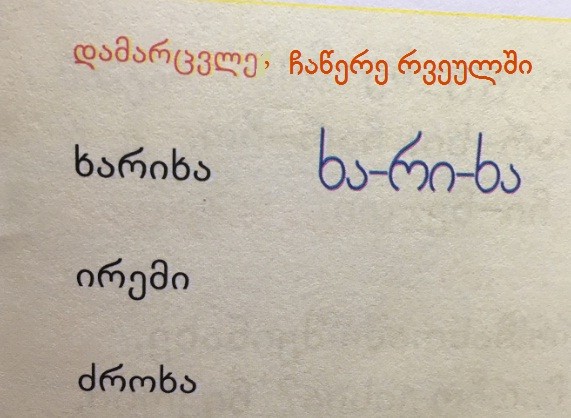 დამარცვლე, ჩაწერე რვეულში
ხარიხა ხა-რი-ხა
ირემი
ძროხა